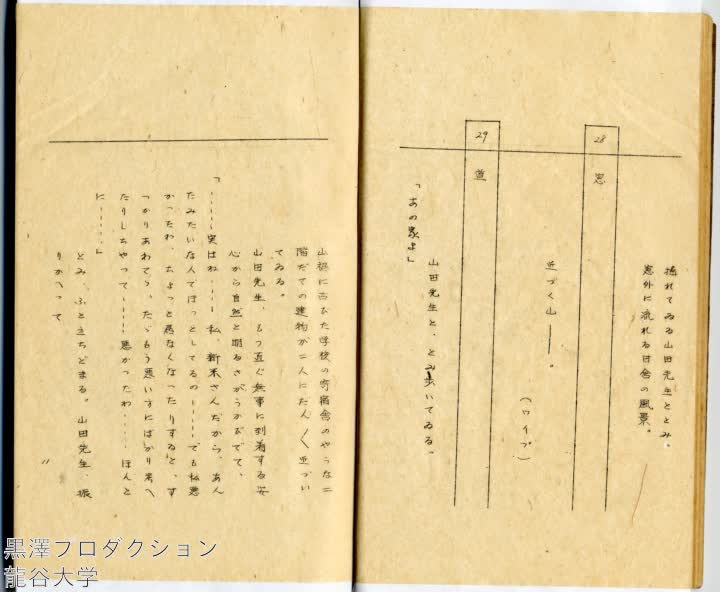 揺れてゐる山田先生ととみ。
窓外に流れる田舎の風景。
28
窓
近づく山――。
(ワイプ)
29
道
山田先生と、とみ歩いてゐる。
「あの家よ」
山裾に古びた学校の寄宿舎のやうな二
階だての建物が二人にだん〳〵近づい
てゐる。
山田先生、もう直ぐ無事に到着する安
心から自然と明るさがうかびでて、
「……実はね……私、新米さんだから、あん
たみたいな人でほっとしてるの……でも私悪
かったわ、ちょっと危なくなったりすると、す
つかりあわてゝ、たゞもう悪い方にばかり考へ
たりしちやって……悪かったわ……ほんと
に……」
とみ、ふと立ちどまる。山田先生、振
りかへって
黒澤プロダクション
龍谷大学